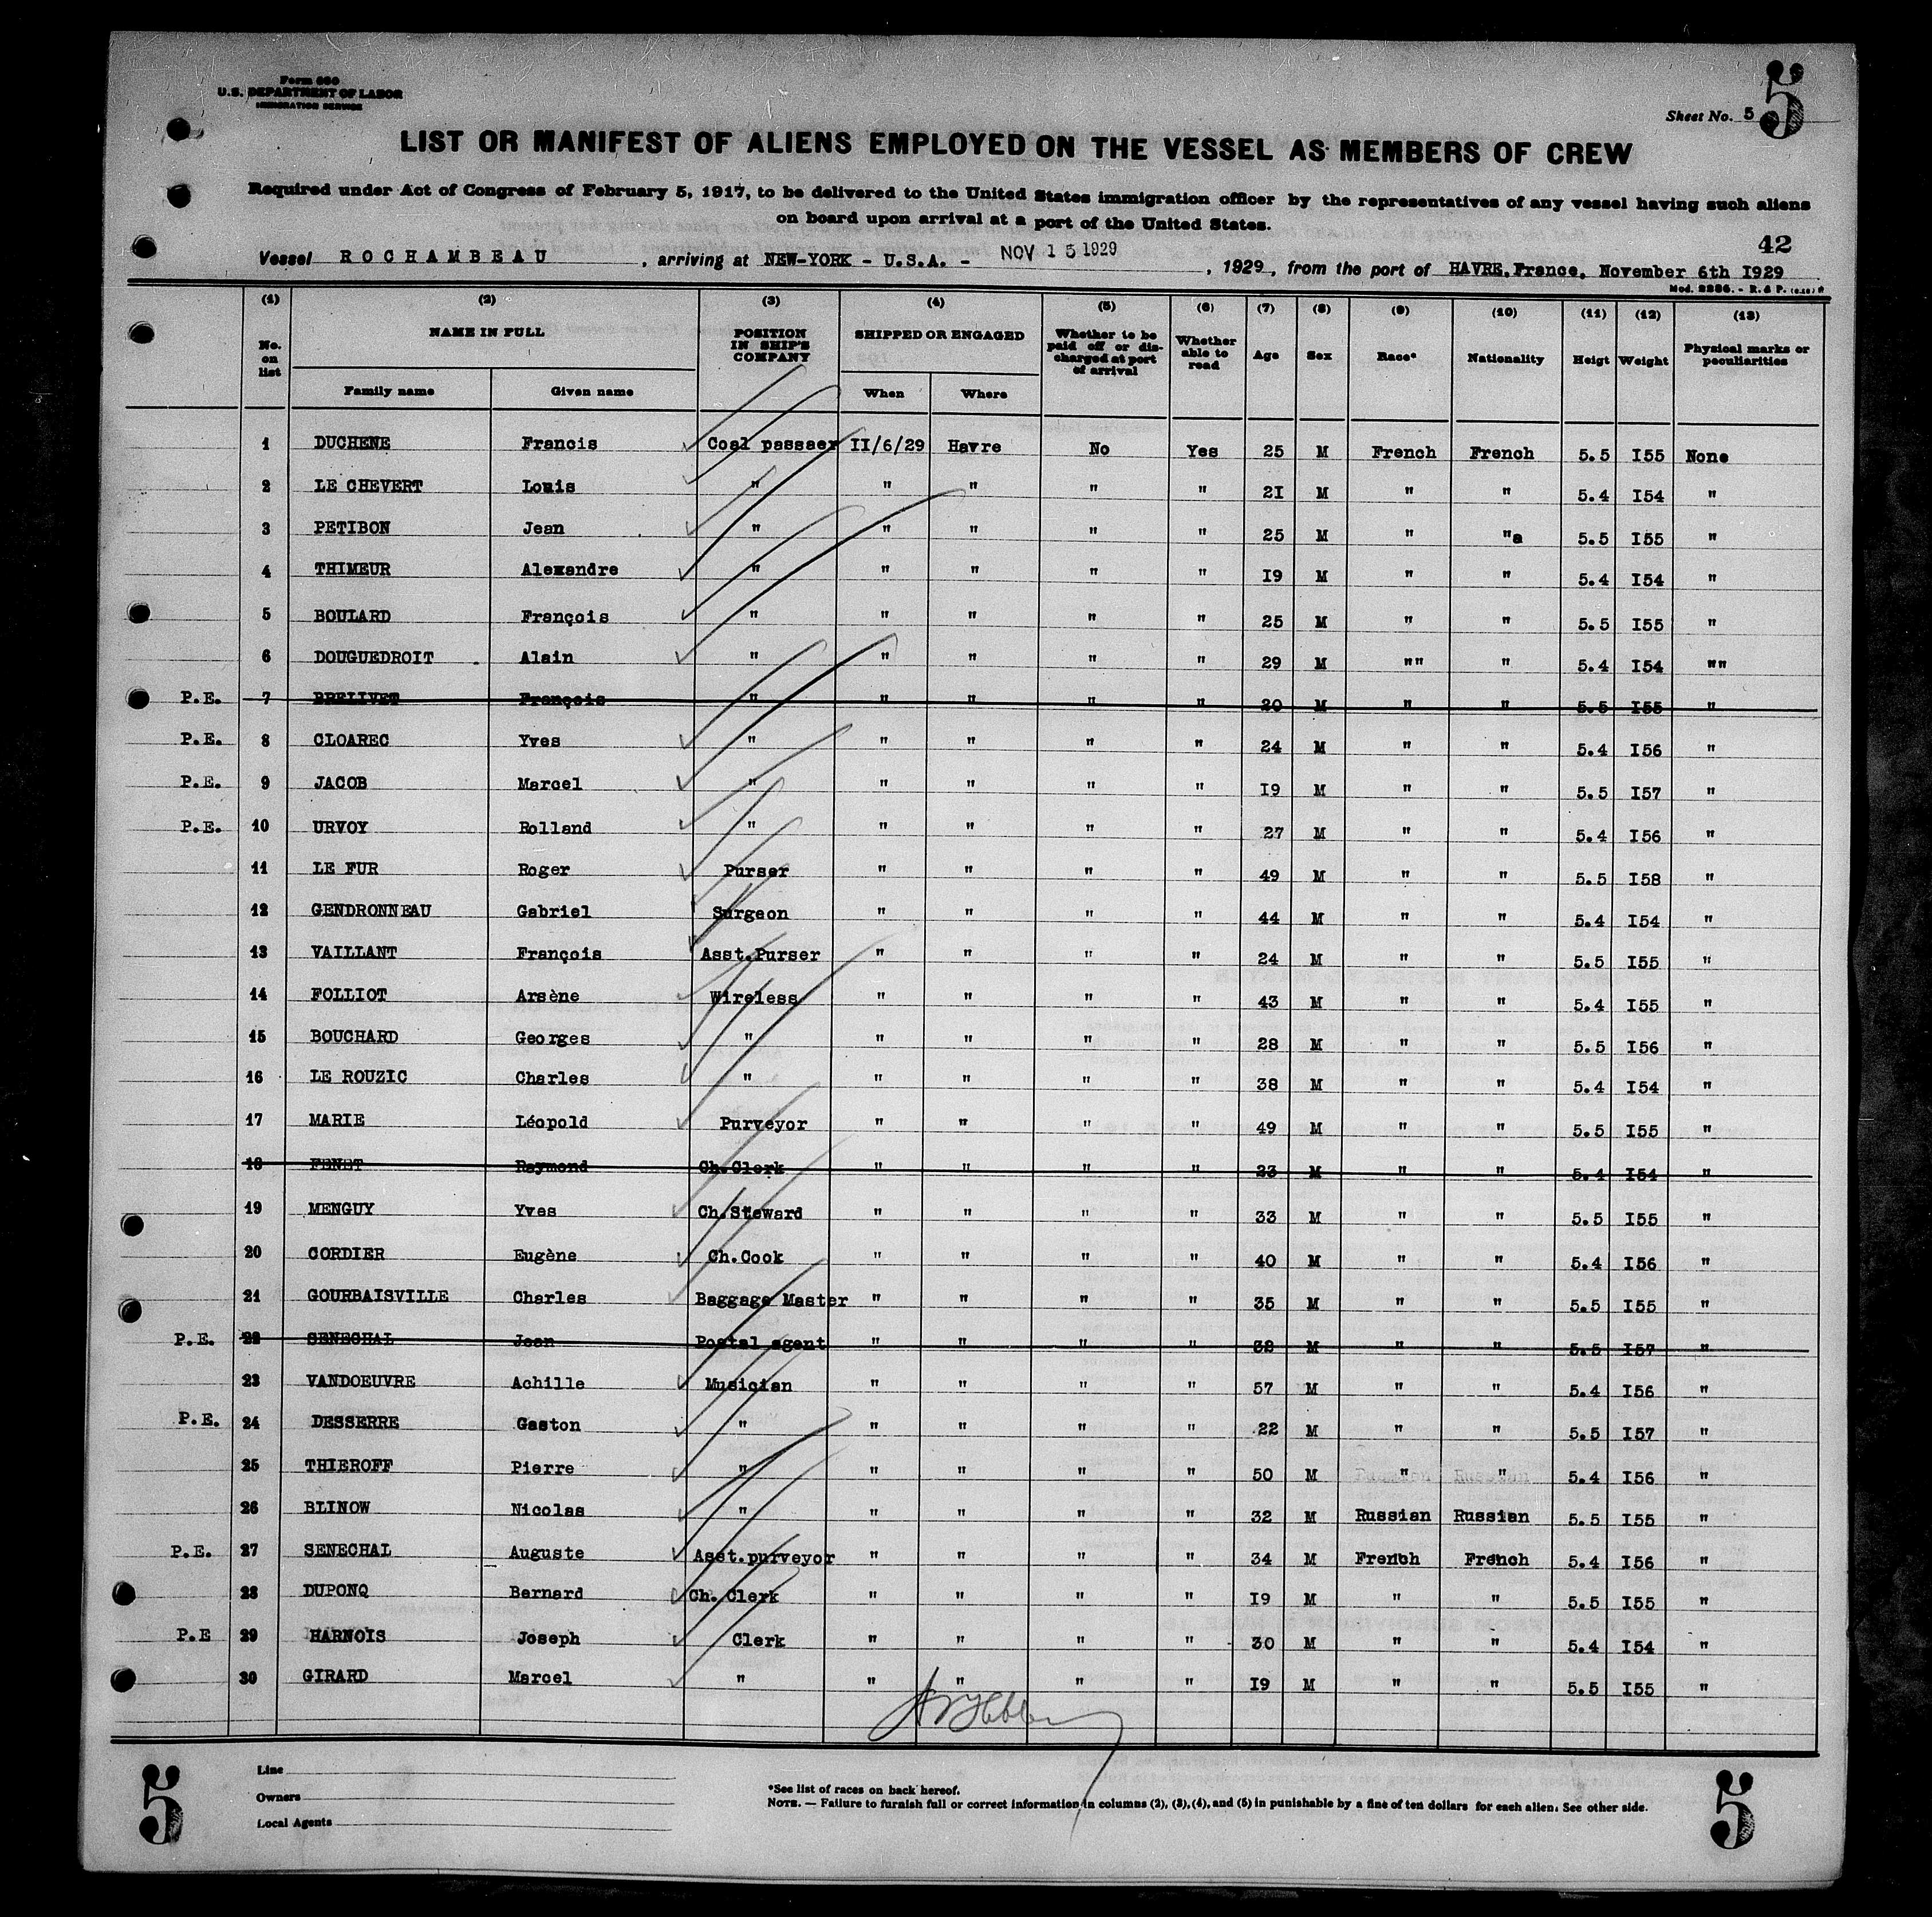 Form 680
U.S. DEPARTMENT OF LABOR
IMMIGRATION SERVICE
Sheet No. 5
5
LIST OR MANIFEST OF ALIENS EMPLOYED ON THE VESSEL AS MEMBERS OF CREW
Required under Act of Congress of February 5, 1917, to be delivered to the United States immigration officer by the representatives of any vessel having such aliens
on board upon arrival at a port of the United States.
42
Vessel ROCHAMBEAU, arriving at NEW-YORK - U.S.A. - NOV 15 1929, 1929, from the port of HAVRE, France, November 6th I929
Mod. 2286. - R. & P.
(1) (2) (3) (4) (5) (6) (7) (8) (9) (10) (11) (12) (13)
No. on list NAME IN FULL Family name Given name POSITION IN SHIP'S COMPANY SHIPPED OR ENGAGED When Where Whether to be paid off or discharged at port of arrival Whether able to read Age Sex Race* Nationality Heigt Weight Physical marks or peculiarities
1 DUCHENE Francis Coal passaer II/6/29 Havre No Yes 25 M French French 5.5 I55 None
2 LE CHEVERT Louis " " " " " 2I M " " 5.4 I54 "
3 PETIBON Jean " " " " " 25 M " "a 5.5 I55 "
4 THIMEUR Alexandre " " " " " I9 M " " 5.4 I54 "
5 BOULARD François " " " " " 25 M " " 5.5 I55 "
6 DOUGUEDROIT Alain " " " " " 29 M "" " 5.4 I54 ""
P.E. 7 BRELIVET François " " " " " 20 M " " 5.5 I55 "
P.E. 8 CLOAREC Yves " " " " " 24 M " " 5.4 I56 "
P.E. 9 JACOB Marcel " " " " " I9 M " " 5.5 I57 "
P.E. 10 URVOY Rolland " " " " " 27 M " " 5.4 I56 "
11 LE FUR Roger Purser " " " " 49 M " " 5.5 I58 "
12 GENDRONNEAU Gabriel Surgeon " " " " 44 M " " 5.4 I54 "
13 VAILLANT François Asst.Purser " " " " 24 M " " 5.5 I55 "
14 FOLLIOT Arsène Wireless " " " " 43 M " " 5.4 I55 "
15 BOUCHARD Georges " " " " " 28 M " " 5.5 I56 "
16 LE ROUZIC Charles " " " " " 38 M " " 5.4 I54 "
17 MARIE Léopold Purveyor " " " " 49 M " " 5.5 I55 "
18 FENET Raymond Ch.Clerk " " " " 23 M " " 5.4 I54 "
19 MENGUY Yves Ch.Steward " " " " 33 M " " 5.5 I55 "
20 CORDIER Eugène Ch.Cook " " " " 40 M " " 5.4 I56 "
21 GOURBAISVILLE Charles Baggage Master " " " " 35 M " " 5.5 I55 "
P.E. 22 SENECHAL Jean Postal agent " " " " 32 M " " 5.5 I57 "
23 VANDOEUVRE Achille Musician " " " " 57 M " " 5.4 I56 "
P.E. 24 DESSERRE Gaston " " " " " 22 M " " 5.5 I57 "
25 THIEROFF Pierre " " " " " 50 M " " 5.4 I56 "
26 BLINOW Nicolas " " " " " 32 M Russian Russian 5.5 I55 "
P.E. 27 SENECHAL Auguste Asst.purveyor " " " " 34 M French French 5.4 I56 "
28 DUPONQ Bernard Ch. Clerk " " " " I9 M " " 5.5 I55 "
P.E 29 HARNOIS Joseph Clerk " " " " 30 M " " 5.4 I54 "
30 GIRARD Marcel " " " " " I9 M " " 5.5 I55 "
Line
Owners
Local Agents
*See list of races on back hereof.
NOTE. — Failure to furnish full or correct information in columns (2), (3), (4), and (5) in punishable by a fine of ten dollars for each alien. See other side.
5
5